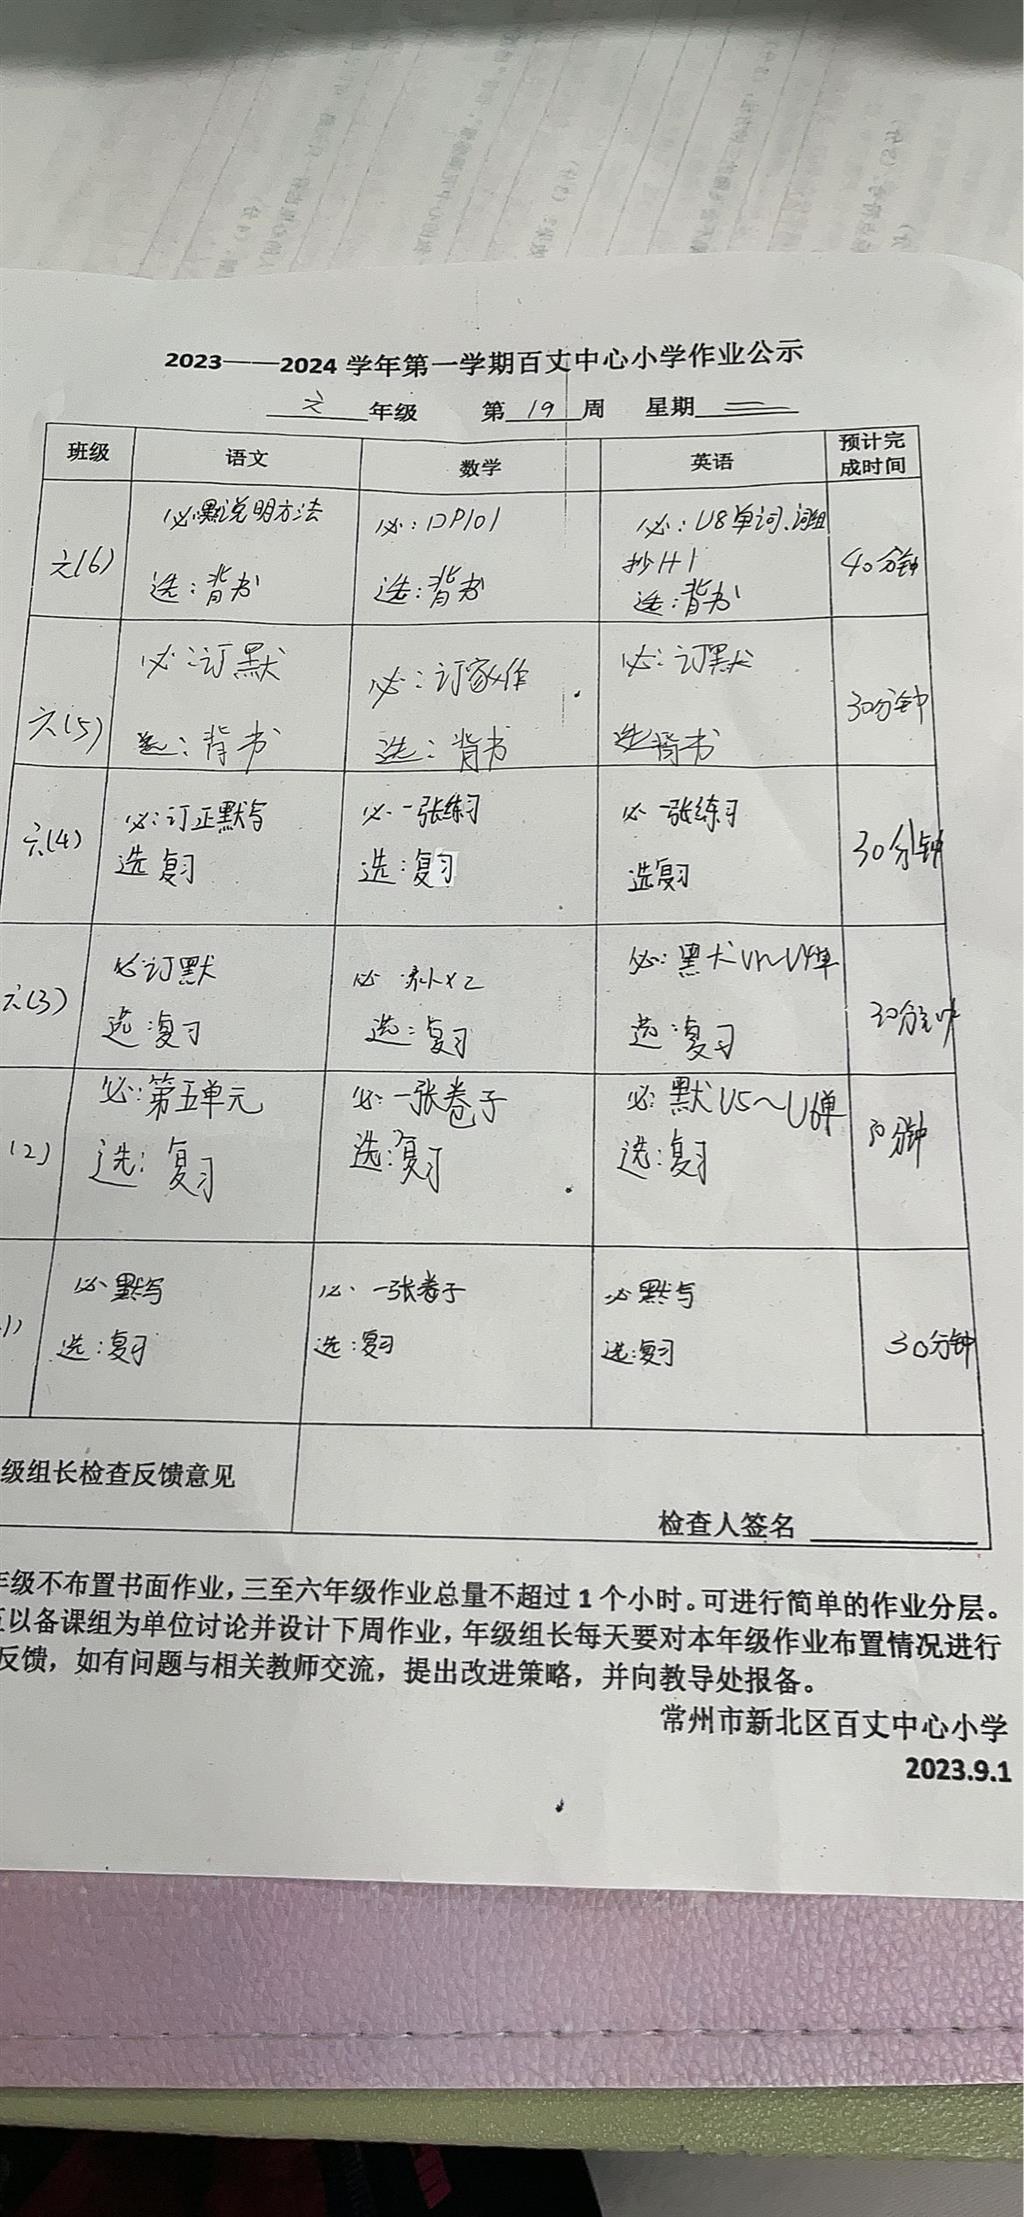 2023——2024 学年第一学期百丈中心小学作业公示
六 年级 第 19 周 星期 二
班级 语文 数学 英语 预计完成时间
六(6)
必:默说明方法
选:背书
必:DP101
选:背书
必:U8单词、词组
抄1+1
选:背书
40分钟
六(5)
必:订默
选:背书
必:订家作
选:背书
必:订默
选背书
30分钟
六(4)
必:订正默写
选复习
必 一张练习
选:复习
必 一张练习
选复习
30分钟
六(3)
必:订默
选:复习
必 ×2
选:复习
必:默 U1~U4单
选:复习
30分钟
(2)
必:第五单元
选:复习
必:一张卷子
选:复习
必:默U5~U6单
选:复习
分钟
1)
必、默写
选:复习
必、一张卷子
选:复习
必 默写
选:复习
30分钟
级组长检查反馈意见
检查人签名
年级不布置书面作业,三至六年级作业总量不超过 1 个小时。可进行简单的作业分层。
以备课组为单位讨论并设计下周作业,年级组长每天要对本年级作业布置情况进行
反馈,如有问题与相关教师交流,提出改进策略,并向教导处报备。
常州市新北区百丈中心小学
2023.9.1